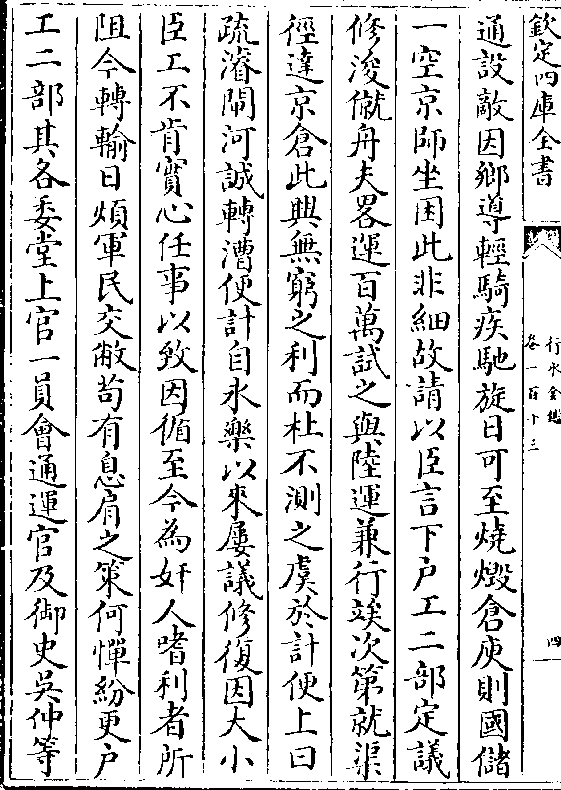 欽定四庫全書
行水金鑑
卷一百十三
四
通設敵因鄉導輕騎疾馳旋日可至燒燬倉庾則國儲
一空京師坐困此非細故請以臣言下户工二部定議
修浚僦舟夫畧運百萬試之與陸運兼行竢次第就渠
徑達京倉此興無窮之利而杜不測之虞於計便上曰
疏濬閘河誠轉漕便計自永樂以來屢議修復因大小
臣工不肯實心任事以致因循至今為奸人嗜利者所
阻今轉輸日煩軍民交敝苟有息肩之策何憚紛更户
工二部其各委堂上官一員會通運官及御史吳仲等